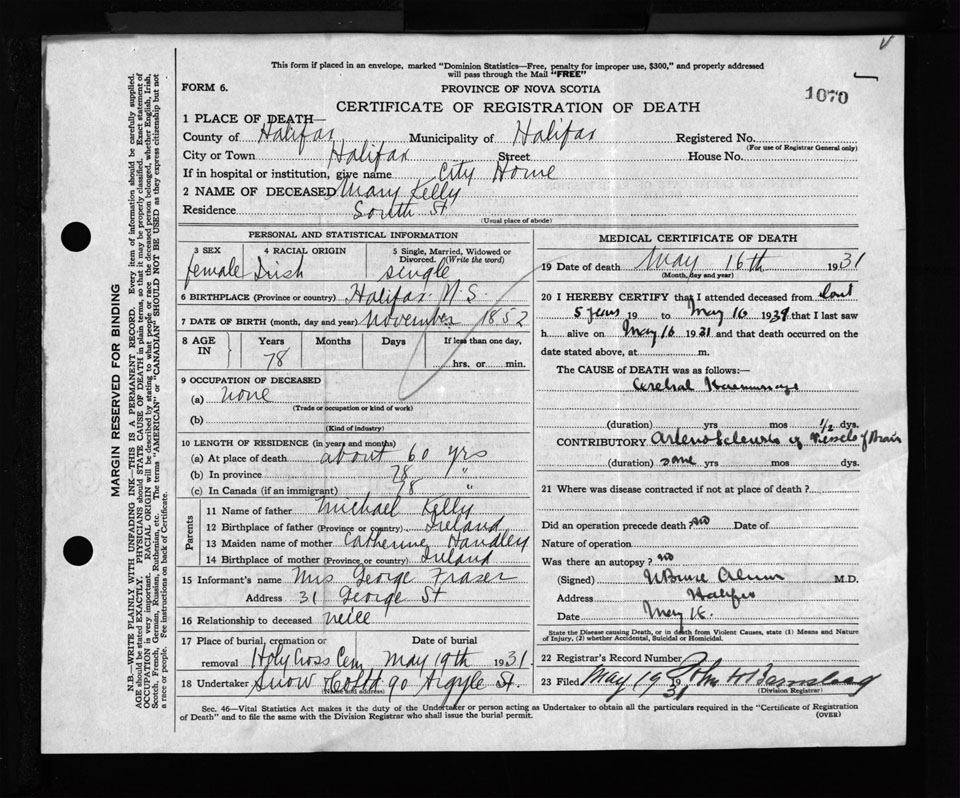 This form if placed in an envelope, marked "Dominion Statistics—Free, penalty for improper use, $300," and properly addressed
will pass through the Mail "FREE"
FORM 6.
PROVINCE OF NOVA SCOTIA
1070
CERTIFICATE OF REGISTRATION OF DEATH
1 PLACE OF DEATH—
County of Halifax Municipality of Halifax Registered No.
(For use of Registrar General only)
City or Town Halifax Street House No.
If in hospital or institution, give name City Home
2 NAME OF DECEASED Mary Kelly
Residence South St
(Usual place of abode)
PERSONAL AND STATISTICAL INFORMATION
3 SEX 4 RACIAL ORIGIN 5 Single, Married, Widowed or
Divorced. (Write the word)
female Irish single
6 BIRTHPLACE (Province or country) Halifax N.S.
7 DATE OF BIRTH (month, day and year) November 1852
8 AGE IN Years Months Days If less than one day,
78 hrs. or min.
9 OCCUPATION OF DECEASED
(a) none
(Trade or occupation or kind of work)
(b)
(Kind of industry)
10 LENGTH OF RESIDENCE (in years and months)
(a) At place of death about 60 yrs
(b) In province 78 "
(c) In Canada (if an immigrant) 78 "
Parents
11 Name of father Michael Kelly
12 Birthplace of father (Province or country) Ireland
13 Maiden name of mother Catherine Handley
14 Birthplace of mother (Province or country) Ireland
15 Informant's name Mrs George Fraser
Address 31 George St
16 Relationship to deceased neice
17 Place of burial, cremation or Date of burial
removal Holy Cross Cem May 19th 1931
18 Undertaker Snow & Co Ltd 90 Argyle St.
(Name and address)
MEDICAL CERTIFICATE OF DEATH
19 Date of death May 16th 1931
(Month, day and year)
20 I HEREBY CERTIFY that I attended deceased from last
5 years 19 to May 16 1931 that I last saw
h alive on May 16 1931 and that death occurred on the
date stated above, at m.
The CAUSE of DEATH was as follows:—
Cerebral Haemorrhage
(duration) yrs mos ½ dys.
CONTRIBUTORY Arteriosclerosis of Vessels of Brain
(duration) some yrs mos dys.
21 Where was disease contracted if not at place of death?
Did an operation precede death? no Date of
Nature of operation
Was there an autopsy? no
(Signed) M.D.
Address Halifax
Date May 18.
State the Disease causing Death, or in death from Violent Causes, state (1) Means and Nature
of Injury, (2) whether Accidental, Suicidal or Homicidal.
22 Registrar's Record Number
23 Filed May 19 1931 John H Barnstead
(Division Registrar)
Sec. 46—Vital Statistics Act makes it the duty of the Undertaker or person acting as Undertaker to obtain all the particulars required in the "Certificate of Registration
of Death" and to file the same with the Division Registrar who shall issue the burial permit.
(OVER)
MARGIN RESERVED FOR BINDING
N.B.—WRITE PLAINLY WITH UNFADING INK—THIS IS A PERMANENT RECORD. Every item of information should be carefully supplied.
AGE should be stated EXACTLY. PHYSICIANS should STATE CAUSE OF DEATH in plain terms, so that it may be properly classified. Exact statement of
OCCUPATION is very important. RACIAL ORIGIN will be described by stating to what people or race the deceased person belonged, whether English, Irish,
Scotch, French, German, Russian, Ruthenian, etc. The terms "AMERICAN" or "CANADIAN" SHOULD NOT BE USED as they express citizenship but not
a race or people. See instructions on back of Certificate.